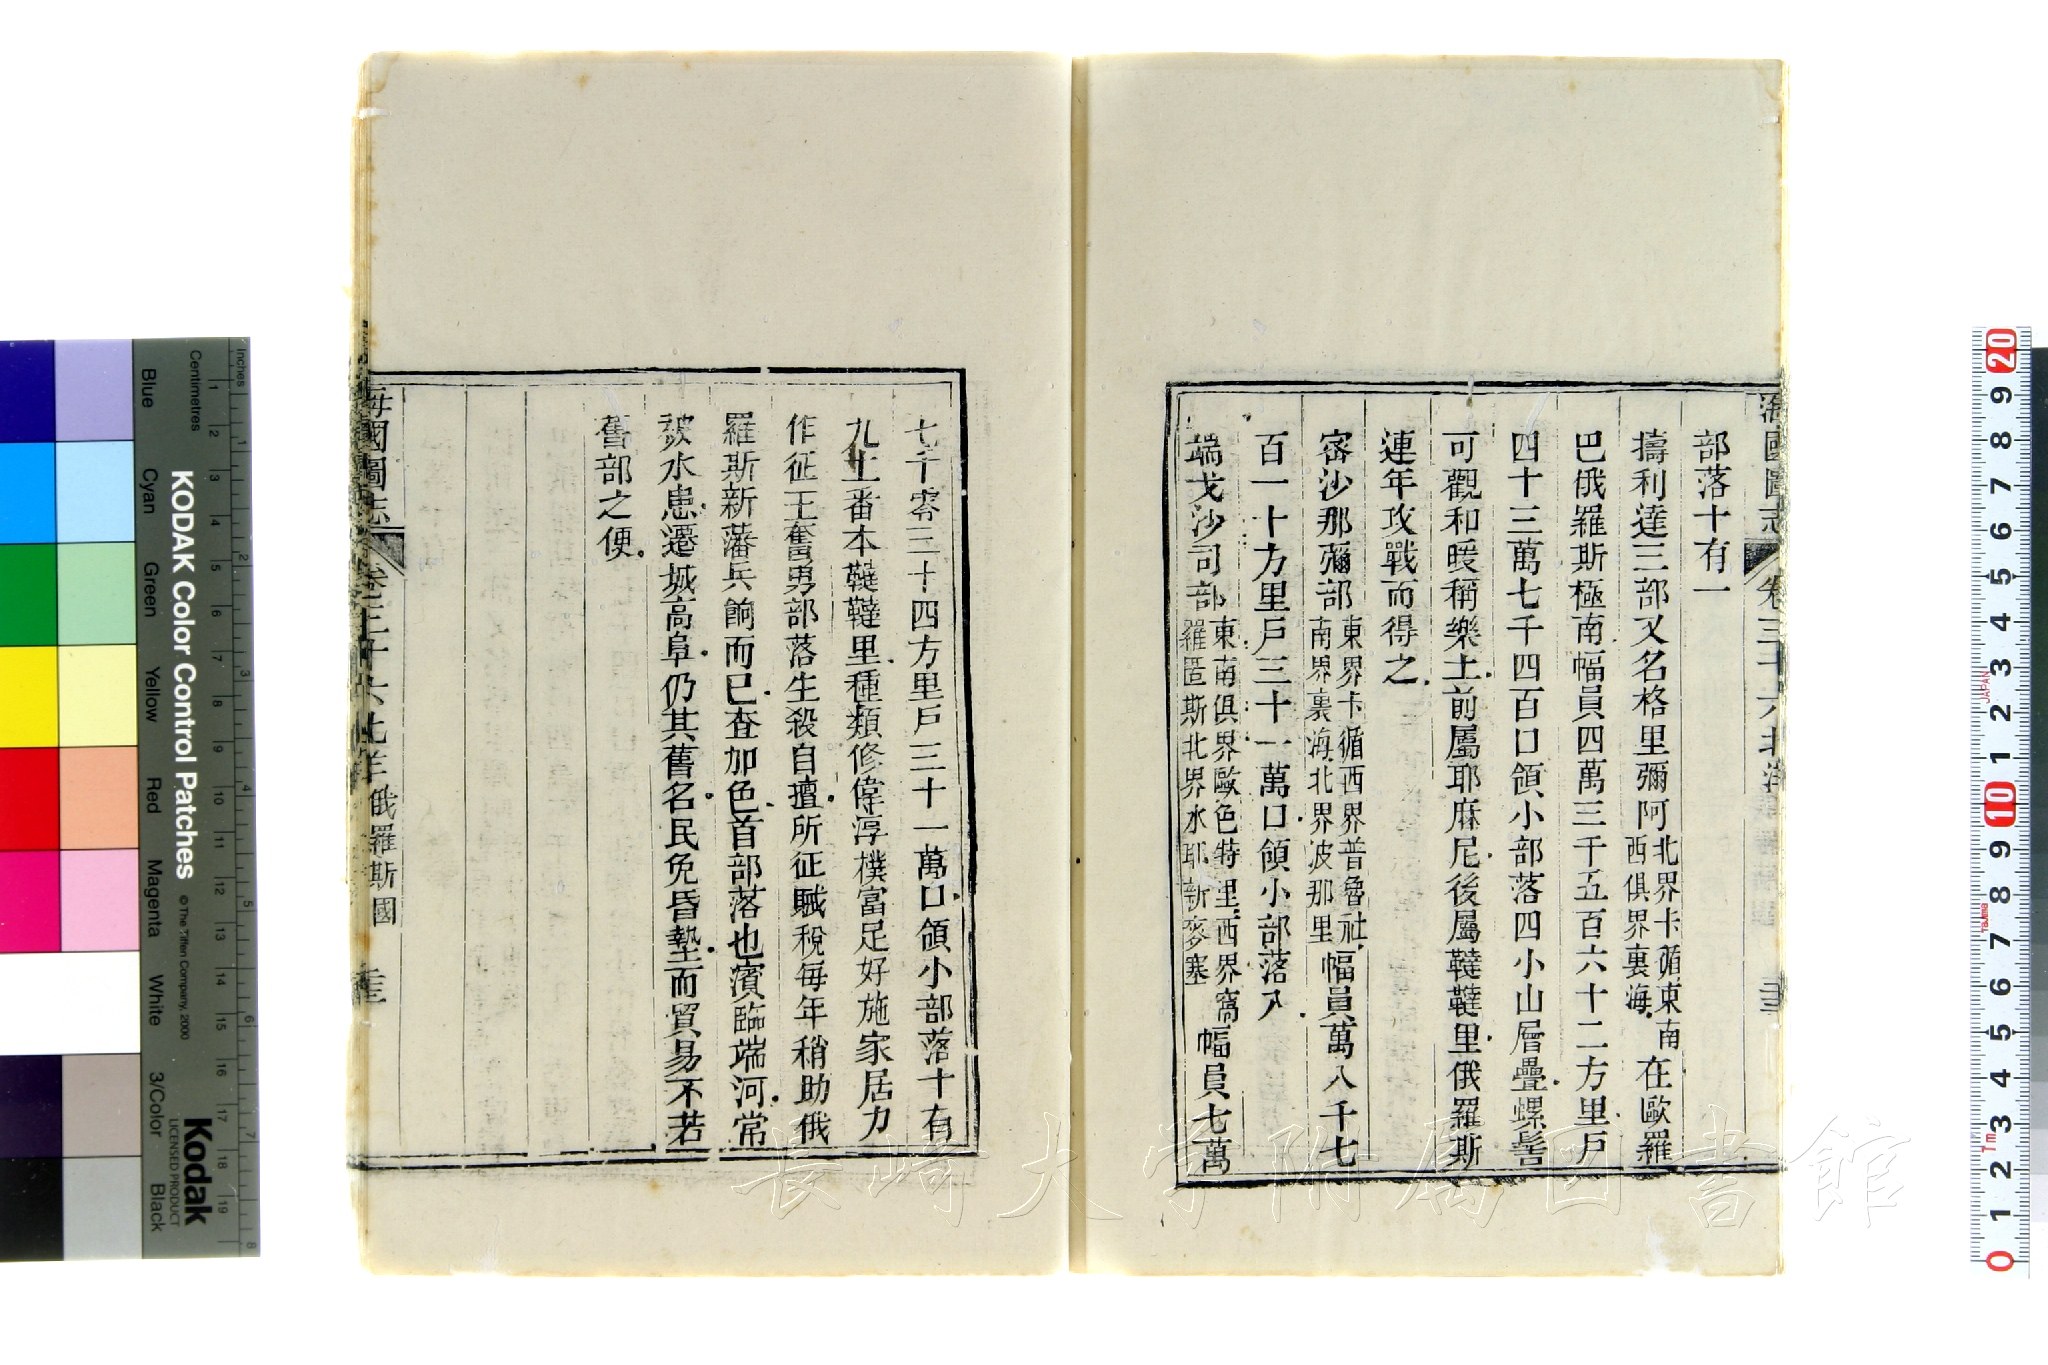 海國圖志 卷三十六 北洋 俄羅斯國
部落十有一
擣利達三部又名格里彌阿北界卡循東南西俱界裏海在歐羅
巴俄羅斯極南幅員四萬三千五百六十二方里戶
四十三萬七千四百口領小部落四小山層疊螺髻
可觀和暖稱樂土前屬耶麻尼後屬韃韃里俄羅斯
連年攻戰而得之
密沙那彌部東界卡循西界普魯社南界裏海北界波那里幅員萬八千七
百一十方里戶三十一萬口領小部落八
端戈沙司部東南俱界歐色特里西界窩羅匿斯北界水耶新麥塞幅員七萬
七千零三十四方里戶三十一萬口領小部落十有
九土番本韃韃里種類修偉淳樸富足好施家居力
作征王奮勇部落生殺自擅所征賦稅每年稍助俄
羅斯新藩兵餉而已查加色首部落也濱臨端河常
被水患遷城高阜仍其舊名民免昏墊而貿易不若
舊部之便
海國圖志 卷三十六 北洋 俄羅斯國
長崎大学附属図書館
Inches
Centimetres
KODAK Color Control Patches
© The Tiffen Company, 2000
Kodak
LICENSED PRODUCT
Blue
Cyan
Green
Yellow
Red
Magenta
White
3/Color
Black